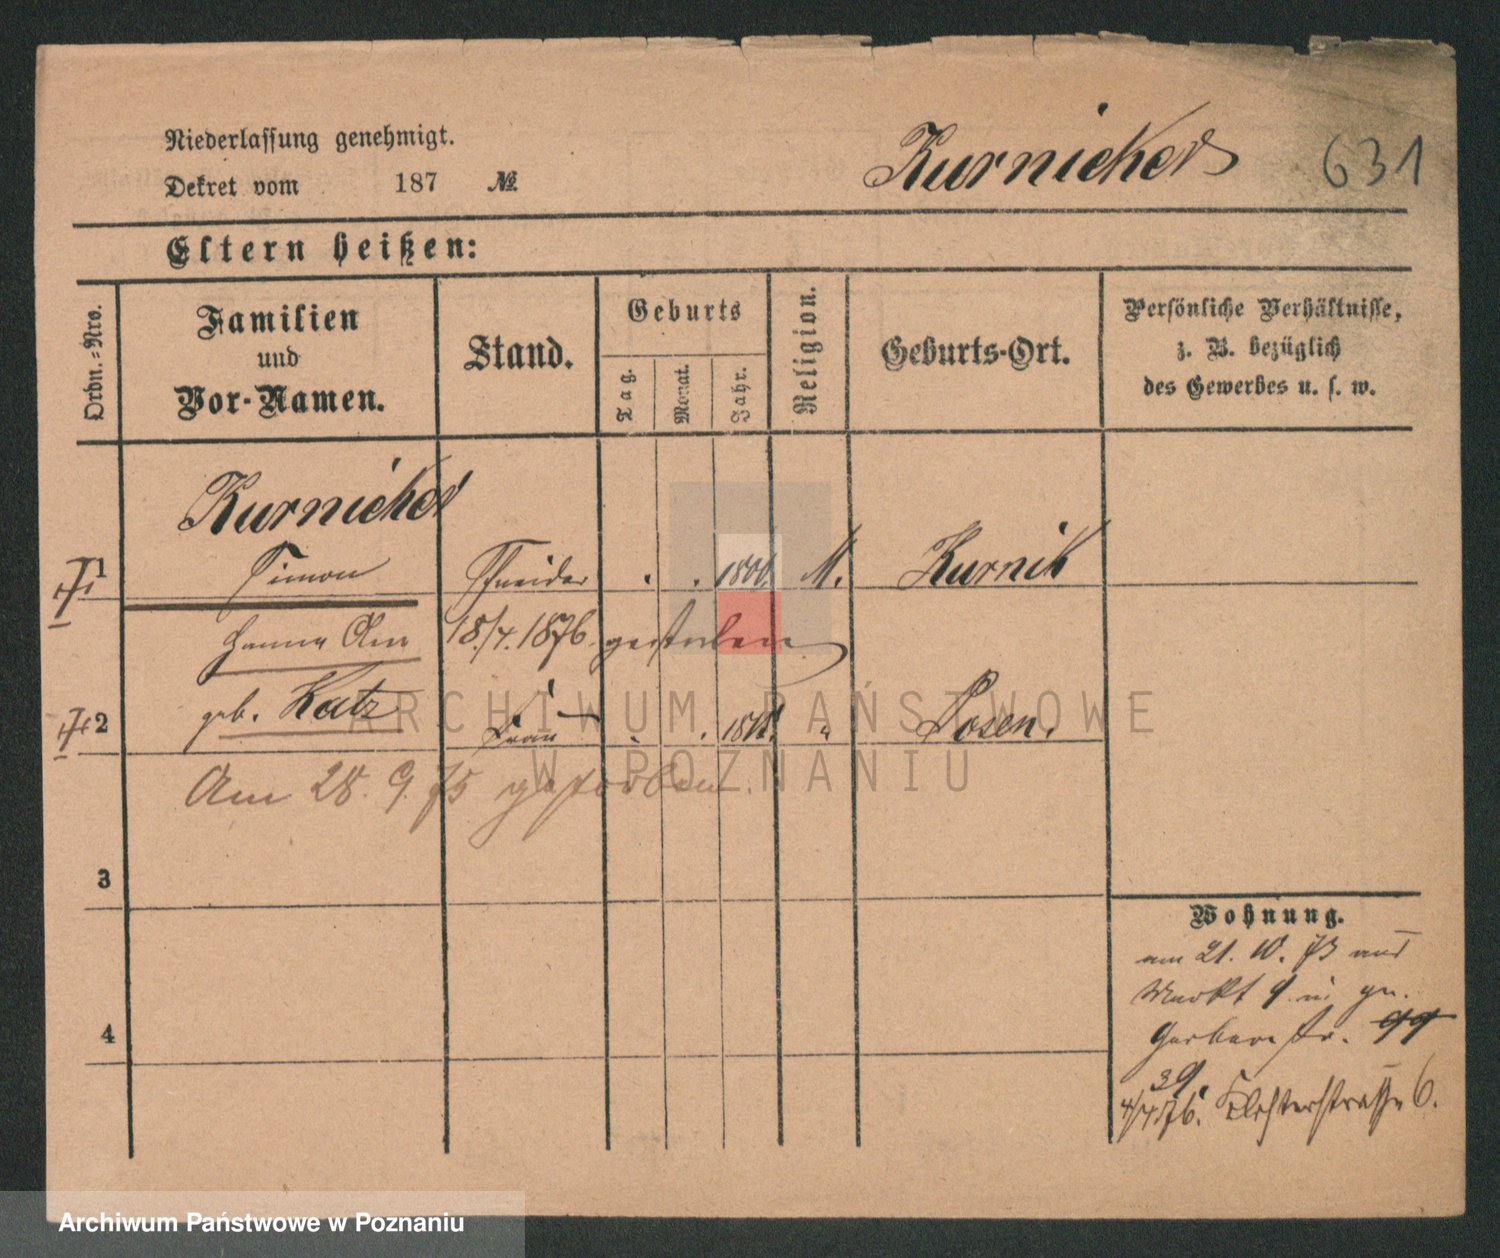 Niederlassung genehmigt.
Kurnicker 631
Dekret vom 187 №
Eltern heißen:
Ordn.-Nro.
Familien
und
Vor-Namen.
Stand.
Geburts
Tag.
Monat.
Jahr.
Religion.
Geburts-Ort.
Persönliche Verhältnisse,
z. B. bezüglich
des Gewerbes u. s. w.
Kurnicker
1 Simon Schneider . . M. Kurnik
Hanna 18./4. 1876 gestorben
2 geb. Katz Frau . . " Posen.
Am 28. 9. 75 gestorben.
3
4
Wohnung.
am 21. 10. 73 aus
Markt 9 in gr.
Gerberstr. 44
39.
4/4.76. Klosterstraße 6.
ARCHIWUM PAŃSTWOWE
W POZNANIU
Archiwum Państwowe w Poznaniu